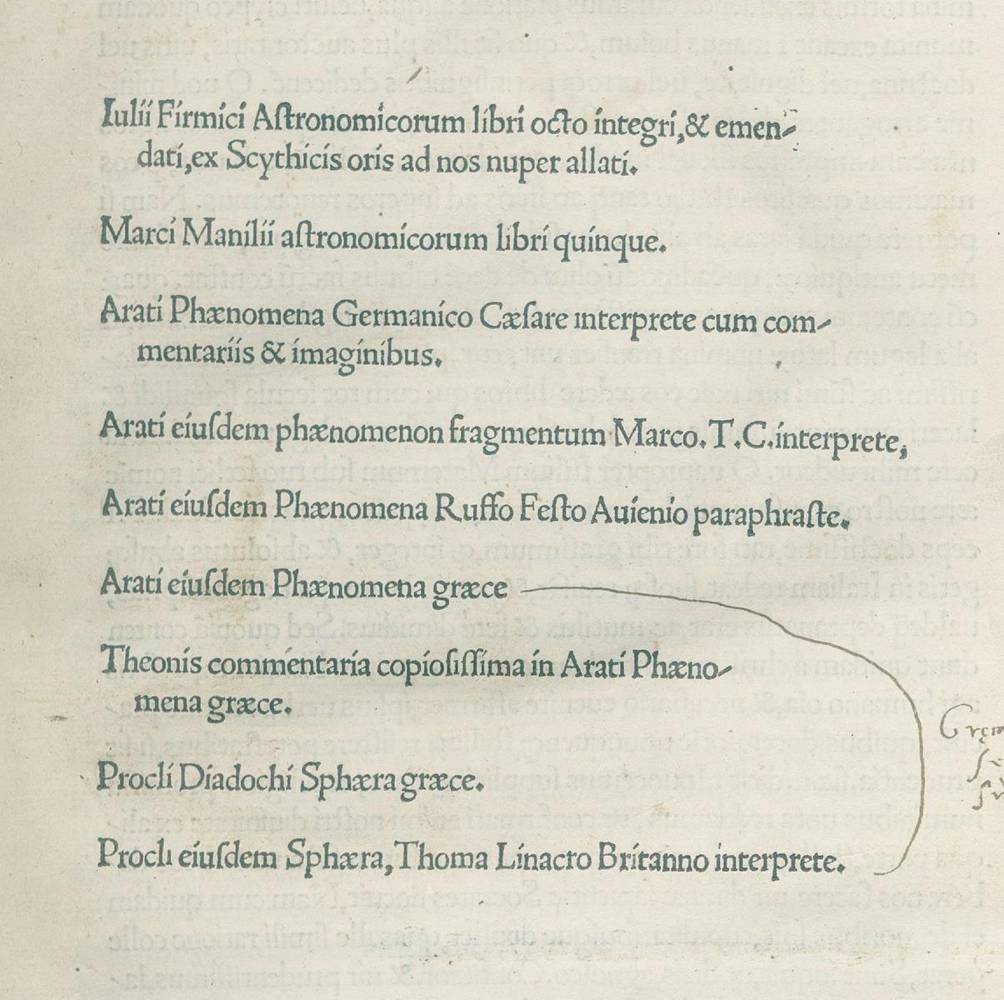 Iulii Firmici Aſtronomicorum libri octo integri,& emen-
dati,ex Scythicis oris ad nos nuper allati.
Marci Manilii aſtronomicorum libri quinque.
Arati Phænomena Germanico Cæſare interprete cum com-
mentariis & imaginibus.
Arati eiuſdem phænomenon fragmentum Marco.T.C.interprete,
Arati eiuſdem Phænomena Ruffo Feſto Auienio paraphraſte.
Arati eiuſdem Phænomena græce
Theonis commentaria copioſiſſima in Arati Phæno-
mena græce.
Procli Diadochi Sphæra græce.
Procli eiuſdem Sphæra,Thoma Linacro Britanno interprete.